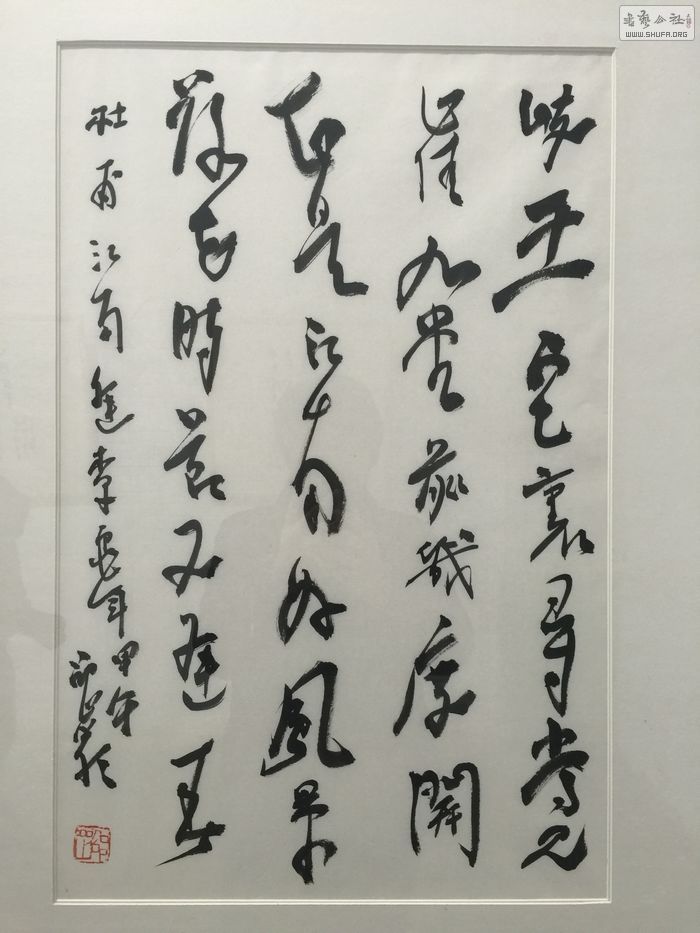 岐王宅裏尋常見
崔九堂前幾度聞
正是江南好風景
落花時節又逢君
杜甫江南逢李龜年 甲午
書藝公社
WWW.SHUFA.ORG